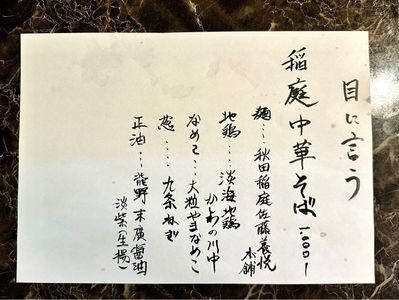 目に言う
稲庭中華そば 1.000-
麺…秋田稲庭佐藤養悦
本舗
地鶏…淡海地鶏
かわの川中
なめこ…大粒やまなめこ
葱…九条ねぎ
正油…龍野末廣醤油
淡紫(生揚)